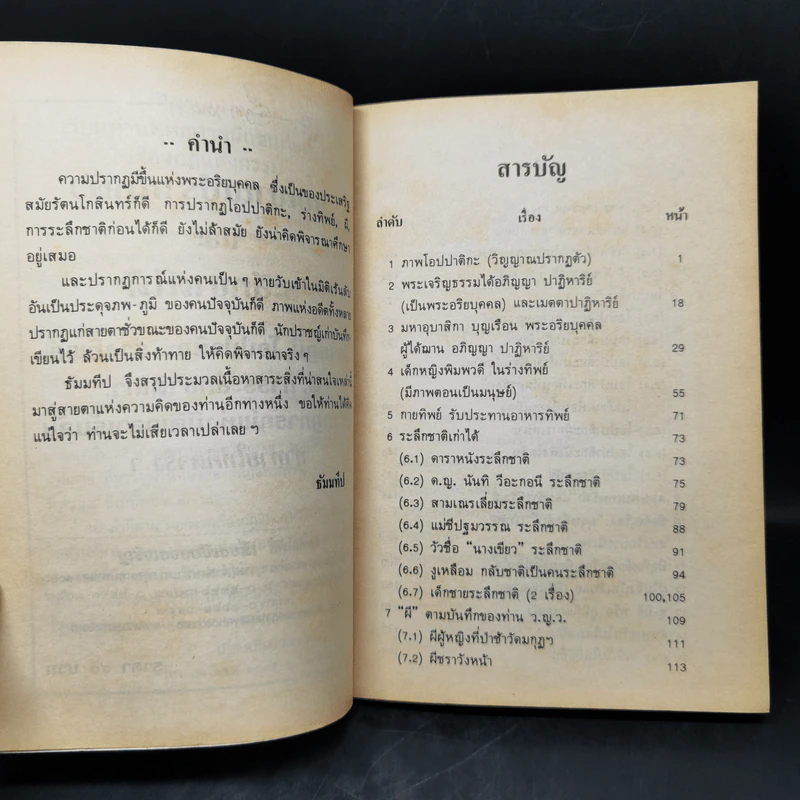 -- คำนำ --
ความปรากฏมีขึ้นแห่งพระอริยบุคคล ซึ่งเป็นของประเสริฐ
สมัยรัตนโกสินทร์ก็ดี การปรากฏโอปปาติกะ, ร่างทิพย์, ผี,
การระลึกชาติก่อนได้ก็ดี ยังไม่ล้าสมัย ยังน่าคิดพิจารณาศึกษา
อยู่เสมอ
และปรากฏการณ์แห่งคนเป็น ๆ หายวับเข้าในมิติเร้นลับ
อันเป็นประตุจภพ-ภูมิ ของคนปัจจุบันก็ดี ภาพแห่งอดีตทั้งหลาย
ปรากฏแก่สายตาชั่วขณะของคนปัจจุบันก็ดี นักปราชญ์เก่าบันทึก-
เขียนไว้ ล้วนเป็นสิ่งท้าทาย ให้คิดพิจารณาจริง ๆ
ธัมมทีป จึงสรุปประมวลเนื้อหาสาระสิ่งที่น่าสนใจเหล่านี้
มาสู่สายตาแห่งความคิดของท่านอีกทางหนึ่ง ขอให้ท่านได้คิด
แน่ใจว่า ท่านจะไม่เสียเวลาเปล่าเลย ๆ
ธัมมทีป
สารบัญ
ลำดับ เรื่อง หน้า
1 ภาพโอปปาติกะ (วิญญาณปรากฏตัว) 1
2 พระเจริญธรรมได้อภิญญา ปาฏิหาริย์
(เป็นพระอริยบุคคล) และเมตตาปาฏิหาริย์ 18
3 มหาอุบาสิกา บุญเรือน พระอริยบุคคล
ผู้ได้ฌาน อภิญญา ปาฏิหาริย์ 29
4 เด็กหญิงพิมพวดี ในร่างทิพย์
(มีภาพตอนเป็นมนุษย์) 55
5 กายทิพย์ รับประทานอาหารทิพย์ 71
6 ระลึกชาติเก่าได้ 73
(6.1) ดาราหนังระลึกชาติ 73
(6.2) ด.ญ. นันทิ วีอะกอนี ระลึกชาติ 75
(6.3) สามเณรเลี่ยมระลึกชาติ 79
(6.4) แม่ชีปฐมวรรณ ระลึกชาติ 88
(6.5) วัวชื่อ "นางเขียว" ระลึกชาติ 91
(6.6) งูเหลือม กลับชาติเป็นคนระลึกชาติ 94
(6.7) เด็กชายระลึกชาติ (2 เรื่อง) 100,105
7 "ผี" ตามบันทึกของท่าน ว.ญ.ว. 109
(7.1) ผีผู้หญิงที่ป่าช้าวัดมกุฏฯ 111
(7.2) ผีชราวังหน้า 113